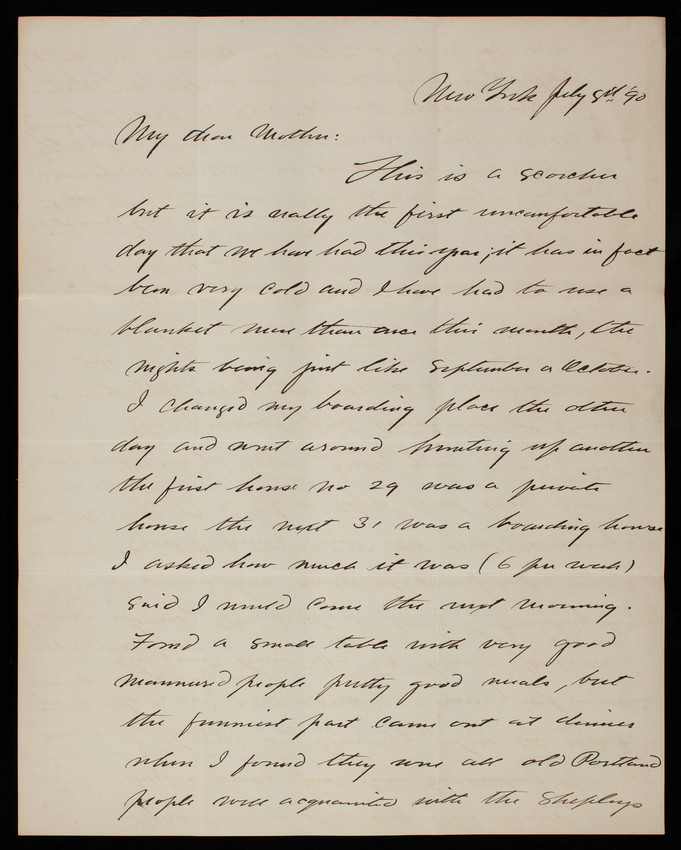 New York July 8th '90
My dear Mother:
This is a scorcher
but it is really the first uncomfortable
day that we have had this year; it has in fact
been very cold and I have had to use a
blanket more than once this month, the
nights being just like September or October.
I changed my boarding place the other
day and went around hunting up another
the first house no 29 was a private
house the next 31 was a boarding house
I asked how much it was (6 per week)
said I would come the next morning.
Found a small table with very good
mannered people pretty good meals, but
the funniest part came out at dinner
when I found they were all old Portland
people well acquainted with the Shepleys